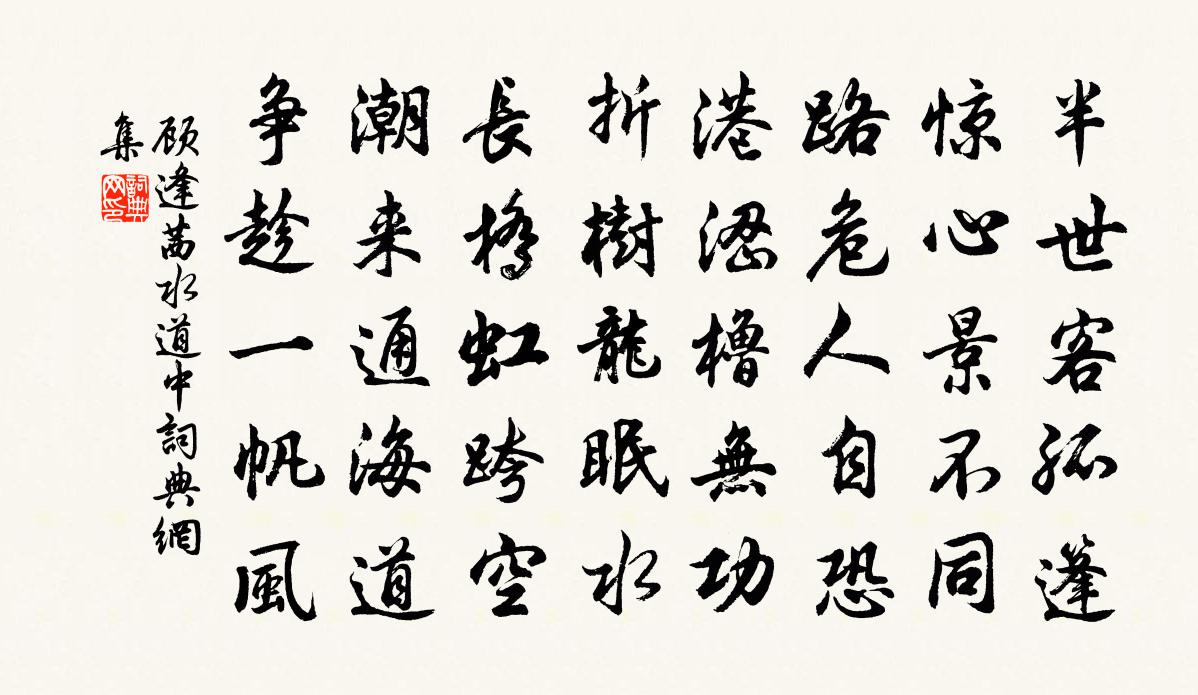 半世客孤蓬
惊心景不同
路危人自恐
港涩櫓無功
折樹龍眠水
長橋虹跨空
潮来通海道
争趁一帆風
顾逢茜水道中詞典網
集
詞典
网印